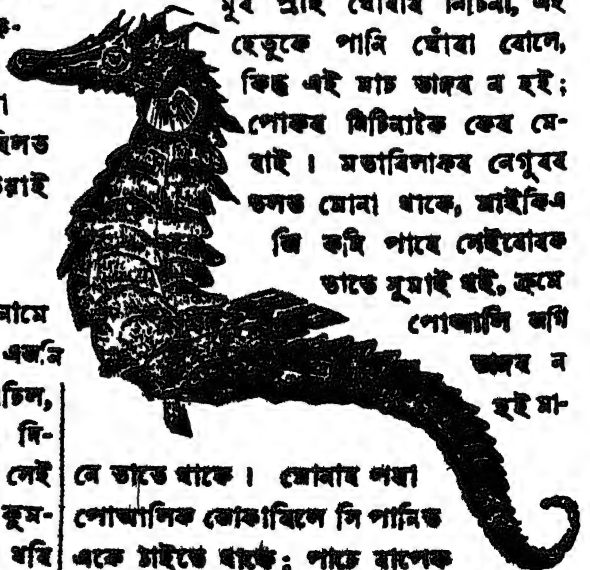 মূৰ প্ৰাই ঘোঁৰাৰ নিচিনা, এই
হেতুকে পানি ঘোঁৰা বোলে,
কিন্তু এই মাচ ডাঙ্গৰ ন হই;
পোকৰ নিচিনাকৈ কেৰ মে-
ৰাই । মতাবিলাকৰ নেগুৰৰ
তলত মোনা থাকে, মাইকিএ
জি কনি পাৰে সেইবোৰক
তাতে সুমাই থই, ক্ৰমে
পোআলি জগি
ডাঙ্গৰ ন
হই মা-
নে তাতে থাকে । মোনাৰ পৰা
পোআলিক জোকাৰিলে সি পানিত
একে ঠাইতে থাকে; পাচে বাপেক
লত
ৰাই
নামে
এজনি
চিল,
দি-
সেই
কুম-
ধৰি